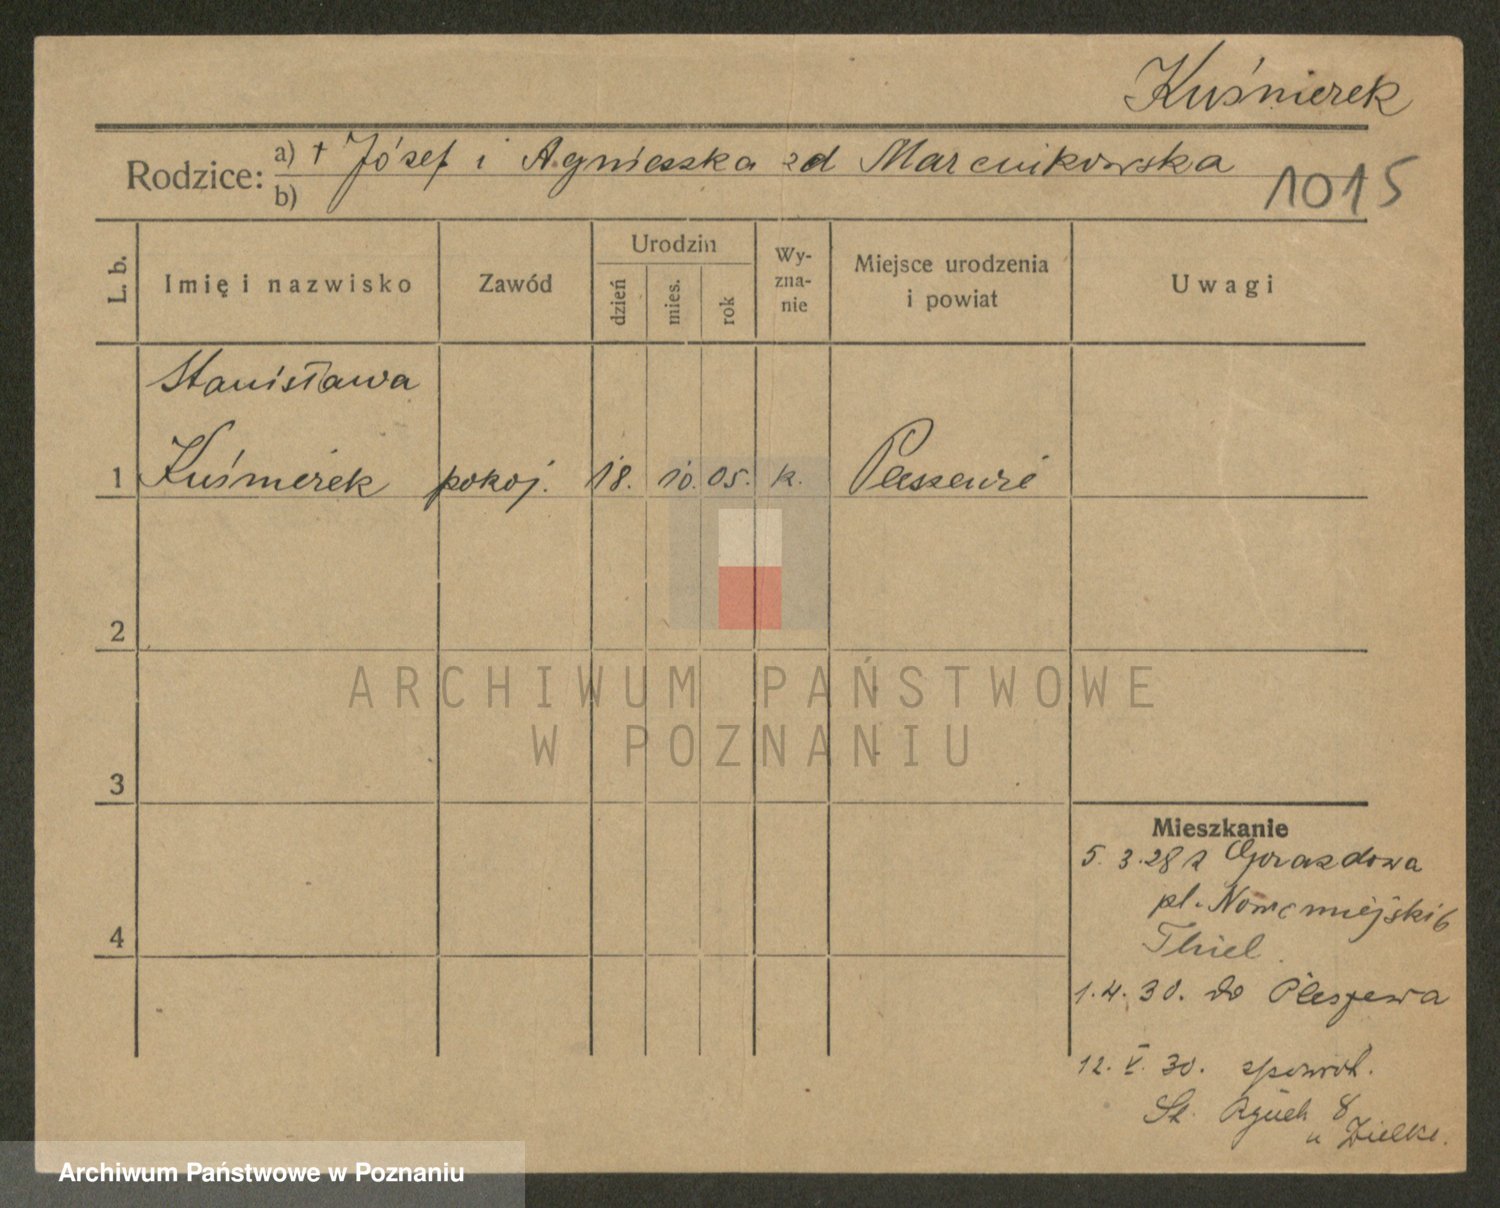 Kuśnierek
Rodzice: a) † Józef i Agnieszka zd Marcinkowska
b)
1015
L. b.
Imię i nazwisko
Zawód
Urodzin
dzień
mies.
rok
Wy-
zna-
nie
Miejsce urodzenia
i powiat
Uwagi
Stanisława
1 Kuśnierek pokoj. 18. 10. 05. k. Pleszewie
2
3
4
Mieszkanie
5. 3. 28 z Gorazdowa
pl. Nowomiejski 6
Thiel.
1. 4. 30. do Pleszewa
12. V. 30. zpowrot.
St. Rynek 8
u Zielke.
ARCHIWUM PAŃSTWOWE
W POZNANIU
Archiwum Państwowe w Poznaniu